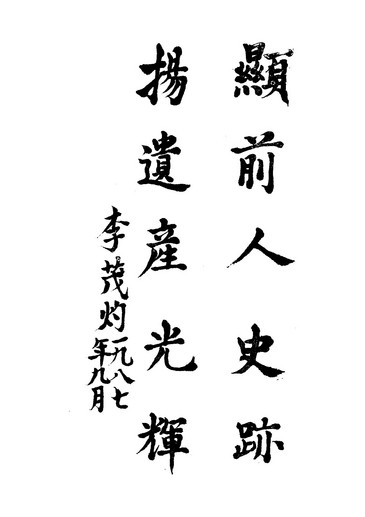 顯前人史跡
揚遺產光輝
李茂灼
一九八七
年九月